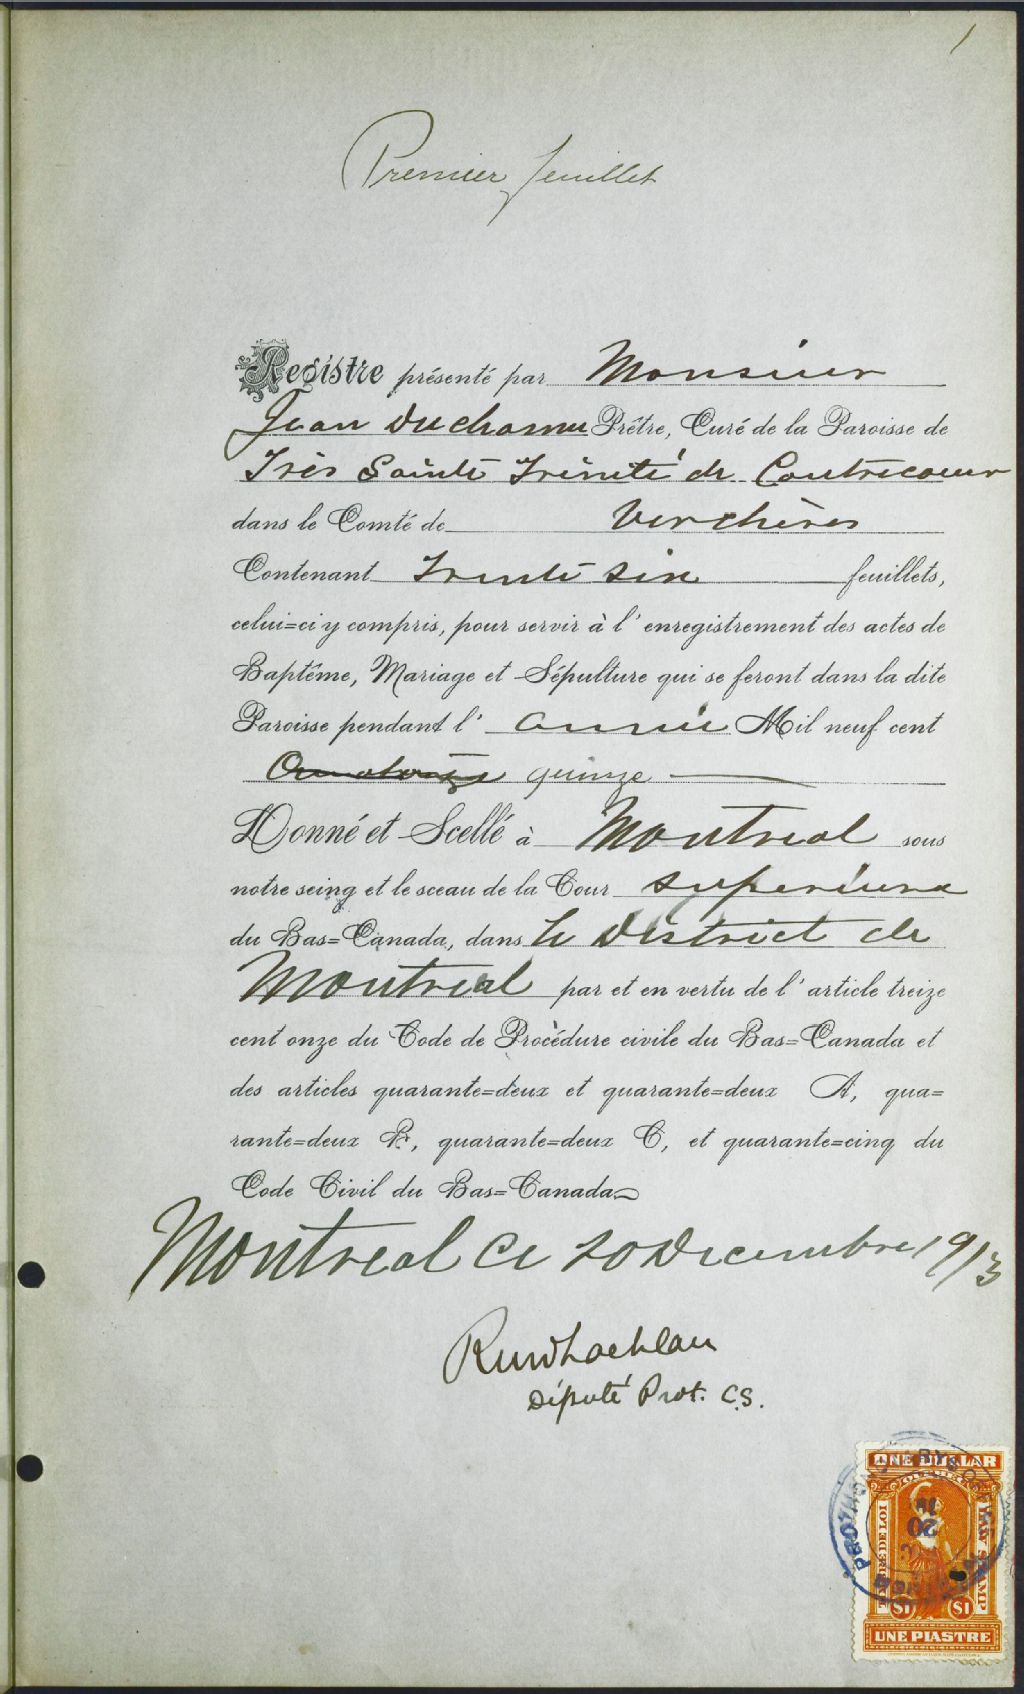 1
Premier feuillet
Registre présenté par Monsieur
Jean Duchesneau Prêtre, Curé de la Paroisse de
Très Sainte Trinité de Contrecoeur
dans le Comté de Verchères
Contenant Trente six feuillets,
celui=ci y compris, pour servir à l'enregistrement des actes de
Baptême, Mariage et Sépulture qui se feront dans la dite
Paroisse pendant l'année Mil neuf cent
quinze
Donné et Scellé à Montreal sous
notre seing et le sceau de la Cour superieure
du Bas=Canada, dans le District de
Montreal par et en vertu de l'article treize
cent onze du Code de Procédure civile du Bas=Canada et
des articles quarante=deux et quarante=deux A, qua=
rante=deux B, quarante=deux C, et quarante=cinq du
Code Civil du Bas=Canada
Montreal Ce 20 Decembre 1913
Député Prot. C.S.
ONE DOLLAR
TIMBRE DE LOI
LAW STAMP
20
$1 $1
UNE PIASTRE